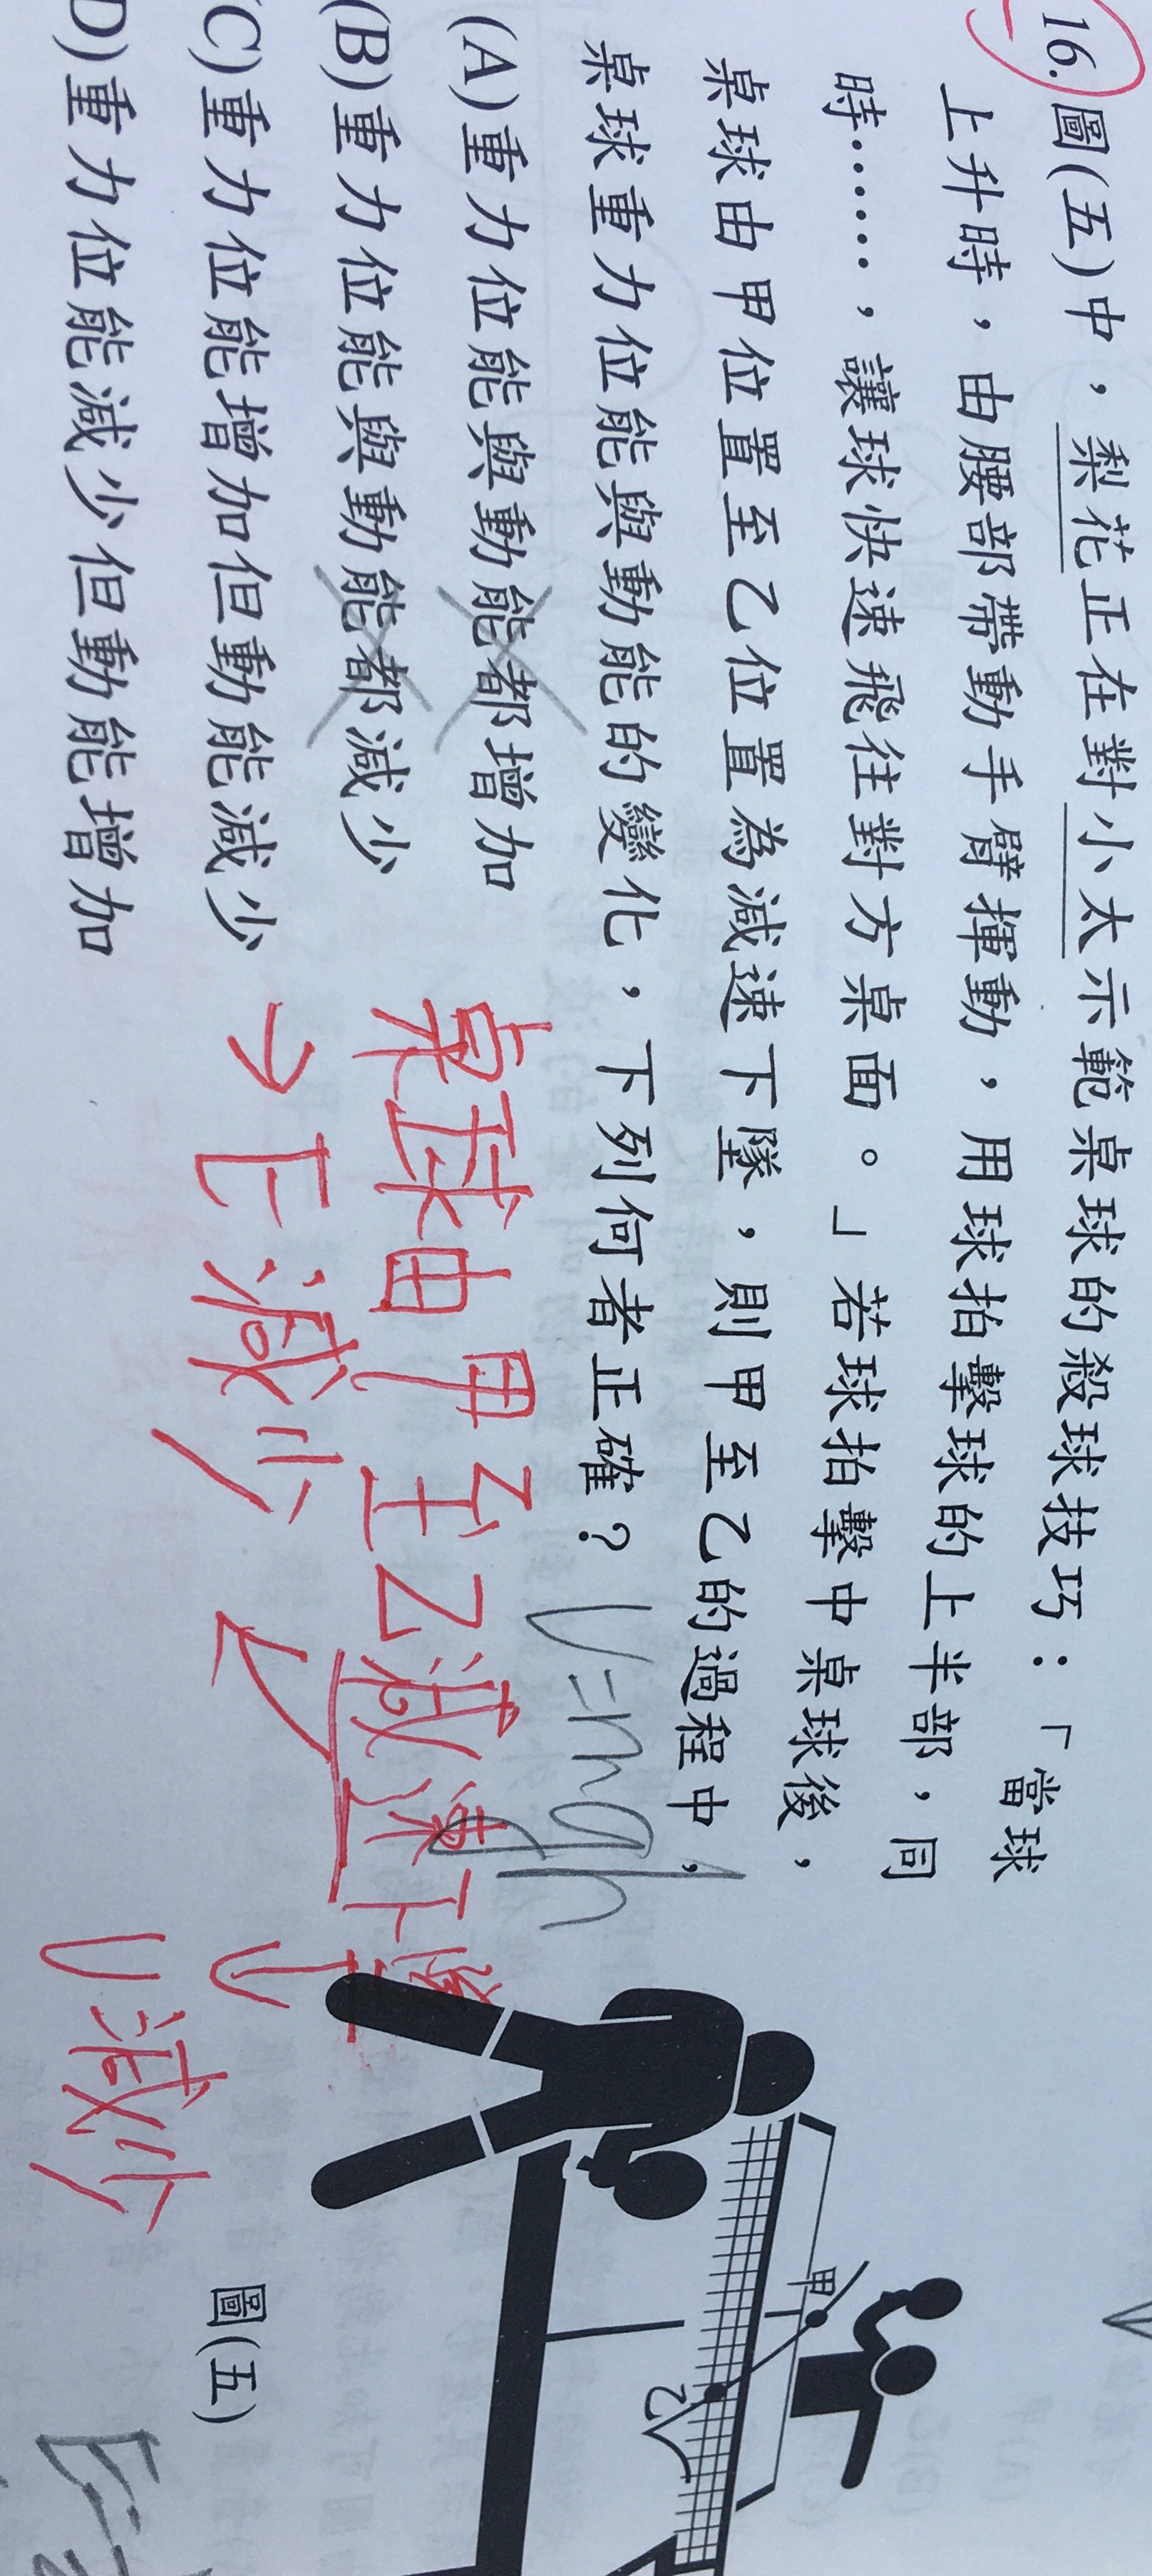 16.圖(五)中，梨花正在對小太示範桌球的殺球技巧：「當球
上升時，由腰部帶動手臂揮動，用球拍擊球的上半部，同
時……，讓球快速飛往對方桌面。」若球拍擊中桌球後，
桌球由甲位置至乙位置為減速下墜，則甲至乙的過程中，
桌球重力位能與動能的變化，下列何者正確？
U=mgh
(A)重力位能與動能都增加
(B)重力位能與動能都減少
(C)重力位能增加但動能減少
D)重力位能減少但動能增加
桌球由甲至乙減速下墜
→E減少
↓
U減少
甲
乙
圖(五)